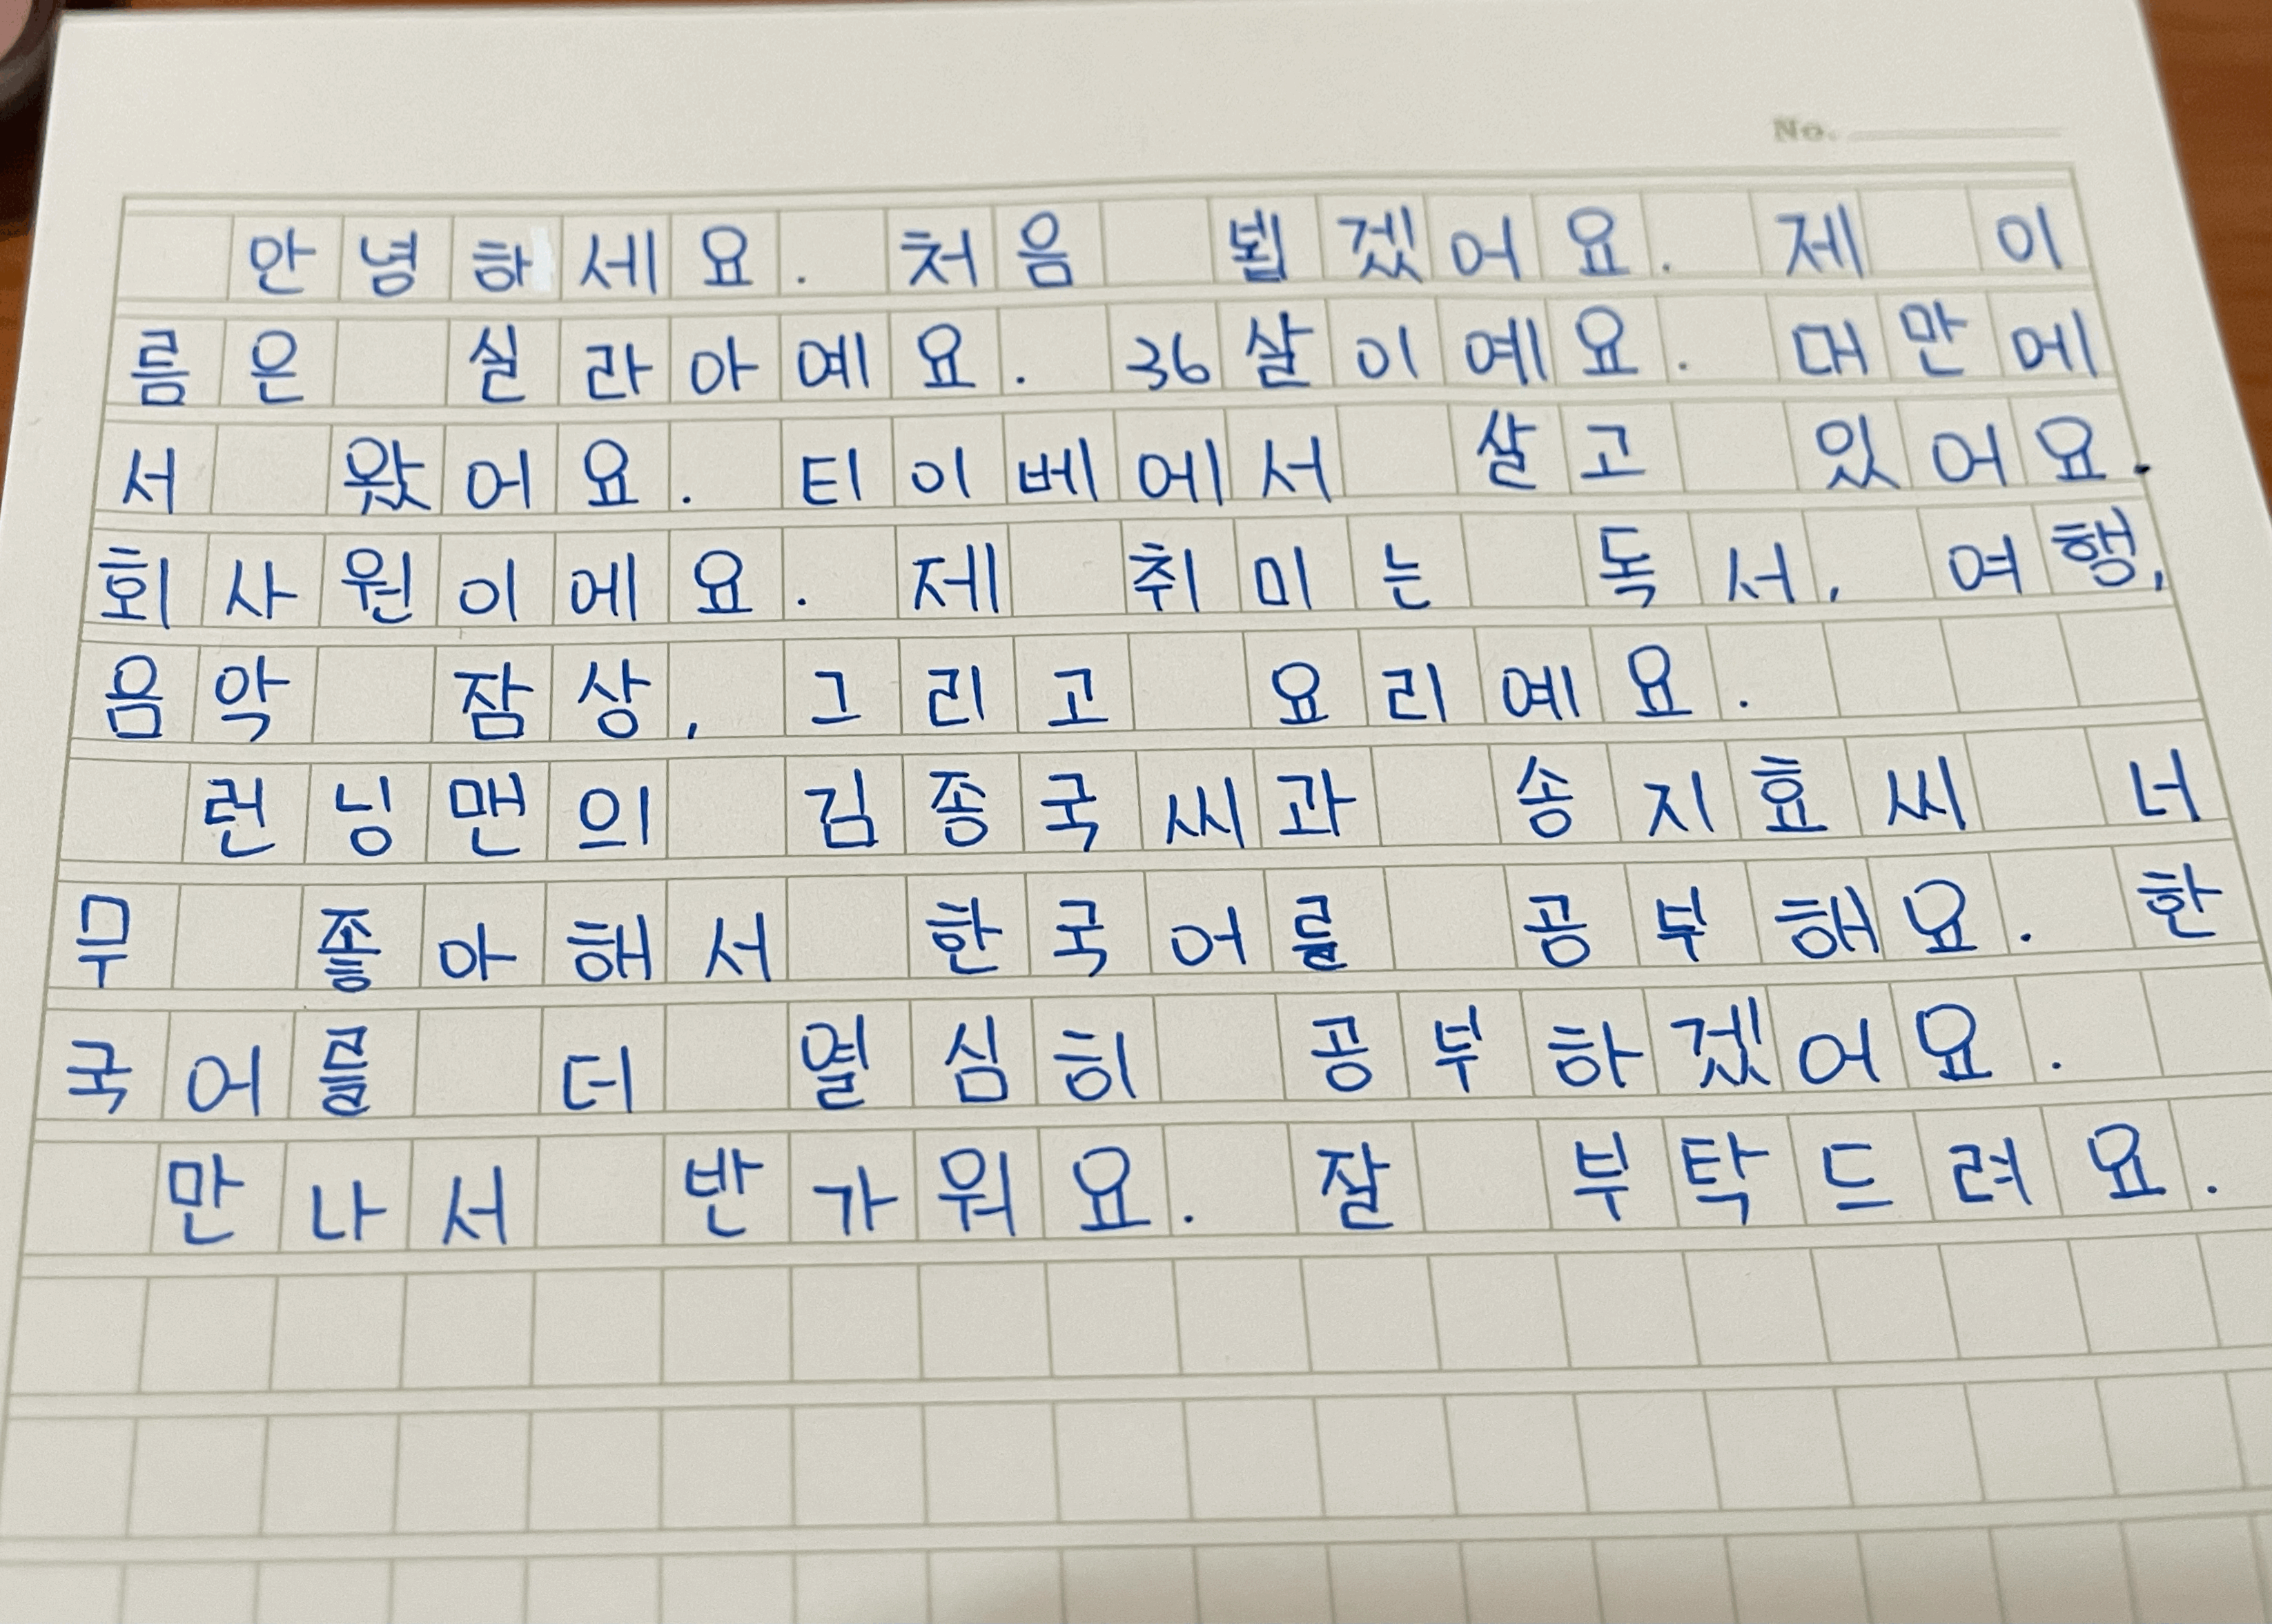 No.
안녕하세요. 처음 뵙겠어요. 제 이
름은 실라아예요. 36살이예요. 대만에
서 왔어요. 티이베에서 살고 있어요.
회사원이에요. 제 취미는 독서, 여행,
음악 잠상, 그리고 요리예요.
런닝맨의 김종국씨과 송지효씨 너
무 좋아해서 한국어를 공부해요. 한
국어를 더 열심히 공부하겠어요.
만나서 반가워요. 잘 부탁드려요.